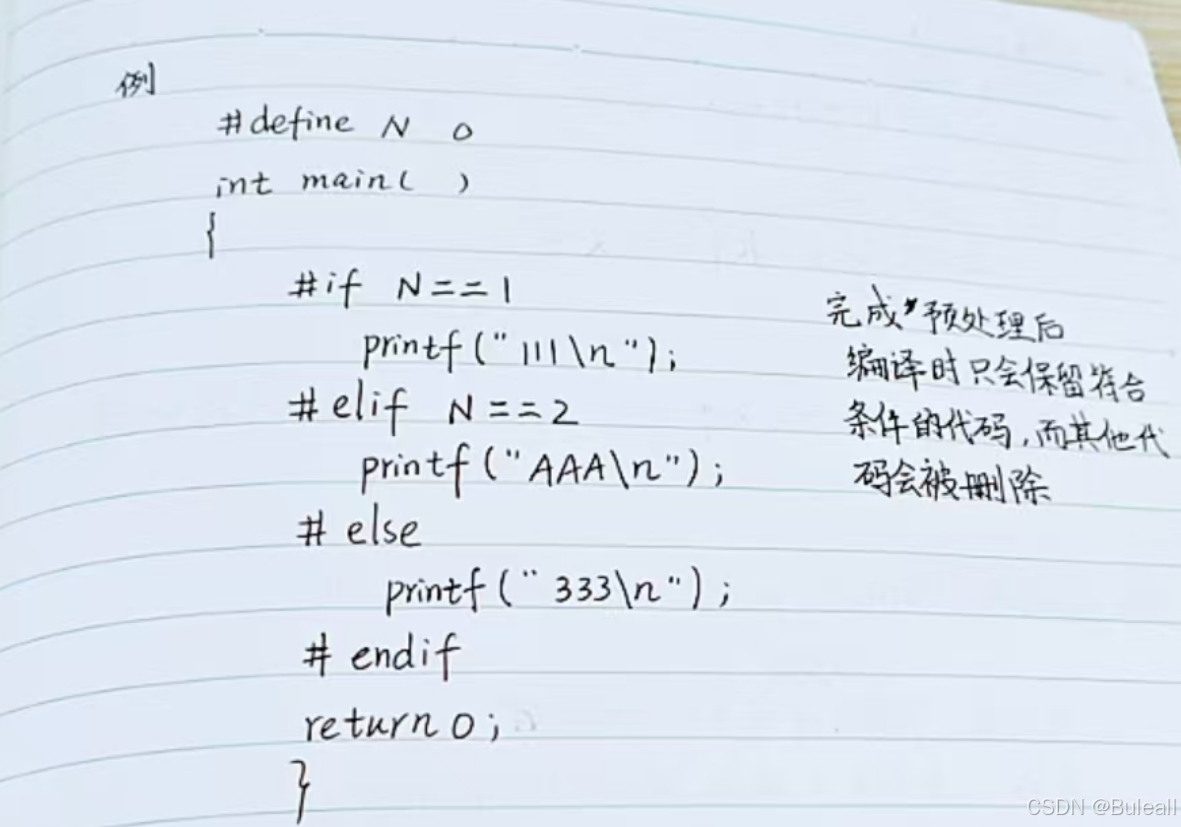 例
#define N 0
int main( )
{
#if N==1
printf("111\n");
#elif N==2
printf("AAA\n");
# else
printf("333\n");
# endif
return 0;
}
完成 预处理后
编译时只会保留符合
条件的代码,而其他代
码会被删除
CSDN @Buleall